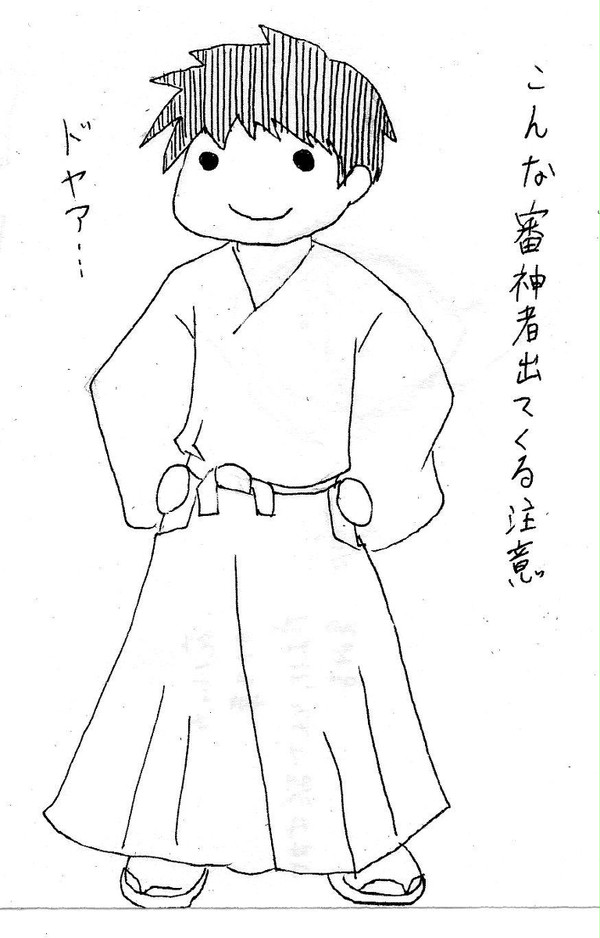 こんな審神者出てくる注意
ドヤァ…